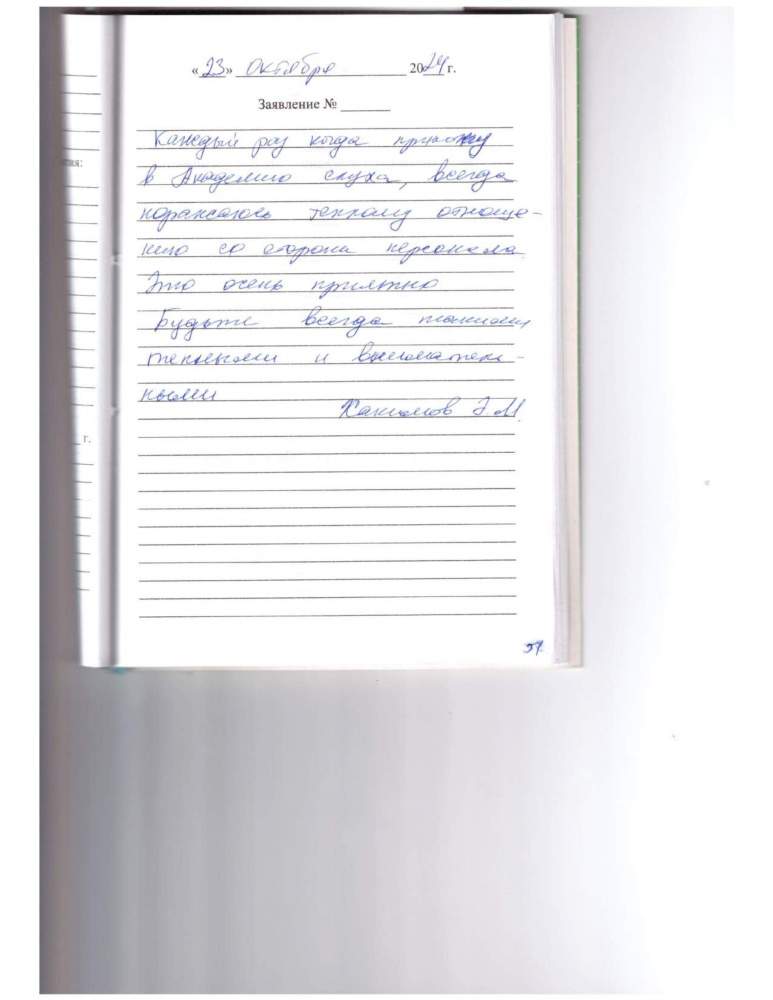 «23» октября 2024 г.
Заявление № ______
Каждый раз когда прихожу
в Академию слуха, всегда
поражаюсь теплому отноше-
нию со стороны персонала
Это очень приятно
Будьте всегда такими
теплыми и вниматель-
ными
Хакимов Э М.
г.